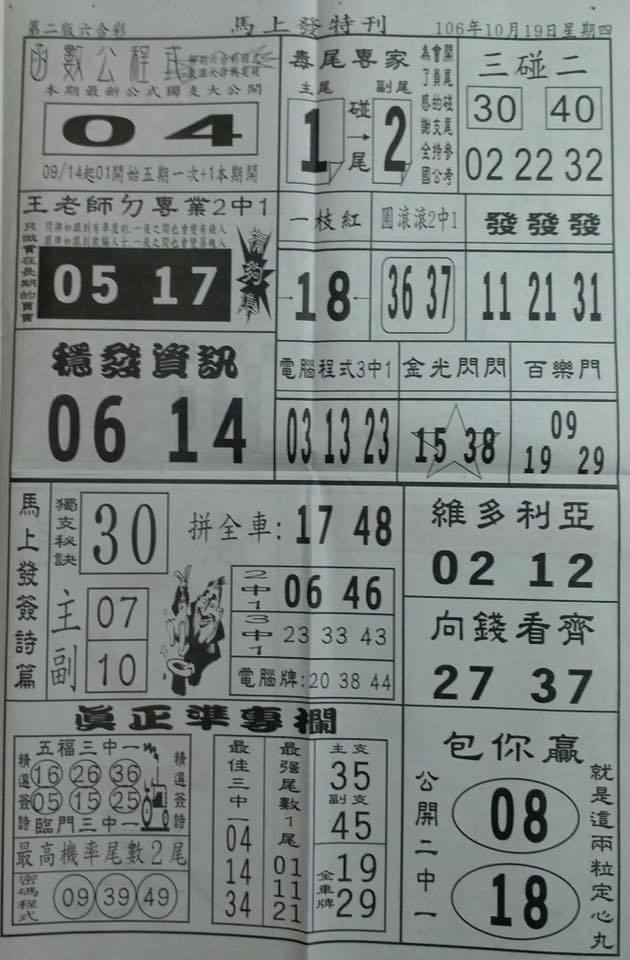 第二版六合彩
馬上發特刊
106年10月19日星期四
函數公程式
本期最新公式獨支大公開
04
09/14起01開始五期一次+1本期開
毒尾專家
主尾
副尾
1
碰→尾
2
為會開
了員尾
感的碰
謝支尾
全持參
國公考
三碰二
30 40
02 22 32
王老師ㄉ專業2中1
只做實在長期的買賣
05 17
一枝紅
18
圓滾滾2中1
36 37
發發發
11 21 31
穩發資訊
06 14
電腦程式3中1
03 13 23
金光閃閃
15 38
百樂門
09
19 29
馬上發簽詩篇
獨支秘訣
30
拼全車:17 48
主
07
副
10
2中1
06 46
3中1
23 33 43
電腦牌:20 38 44
維多利亞
02 12
向錢看齊
27 37
眞正準專欄
五福三中一
精選簽詩
16 26 36
05 15 25
精選簽詩
臨門三中一
最高機率尾數2尾
密碼程式
09 39 49
最佳三中一
04
14
34
最强尾數1尾
01
11
21
主支
35
副支
45
全車牌
19
29
包你贏
公開二中一
08
18
就是這兩粒定心丸